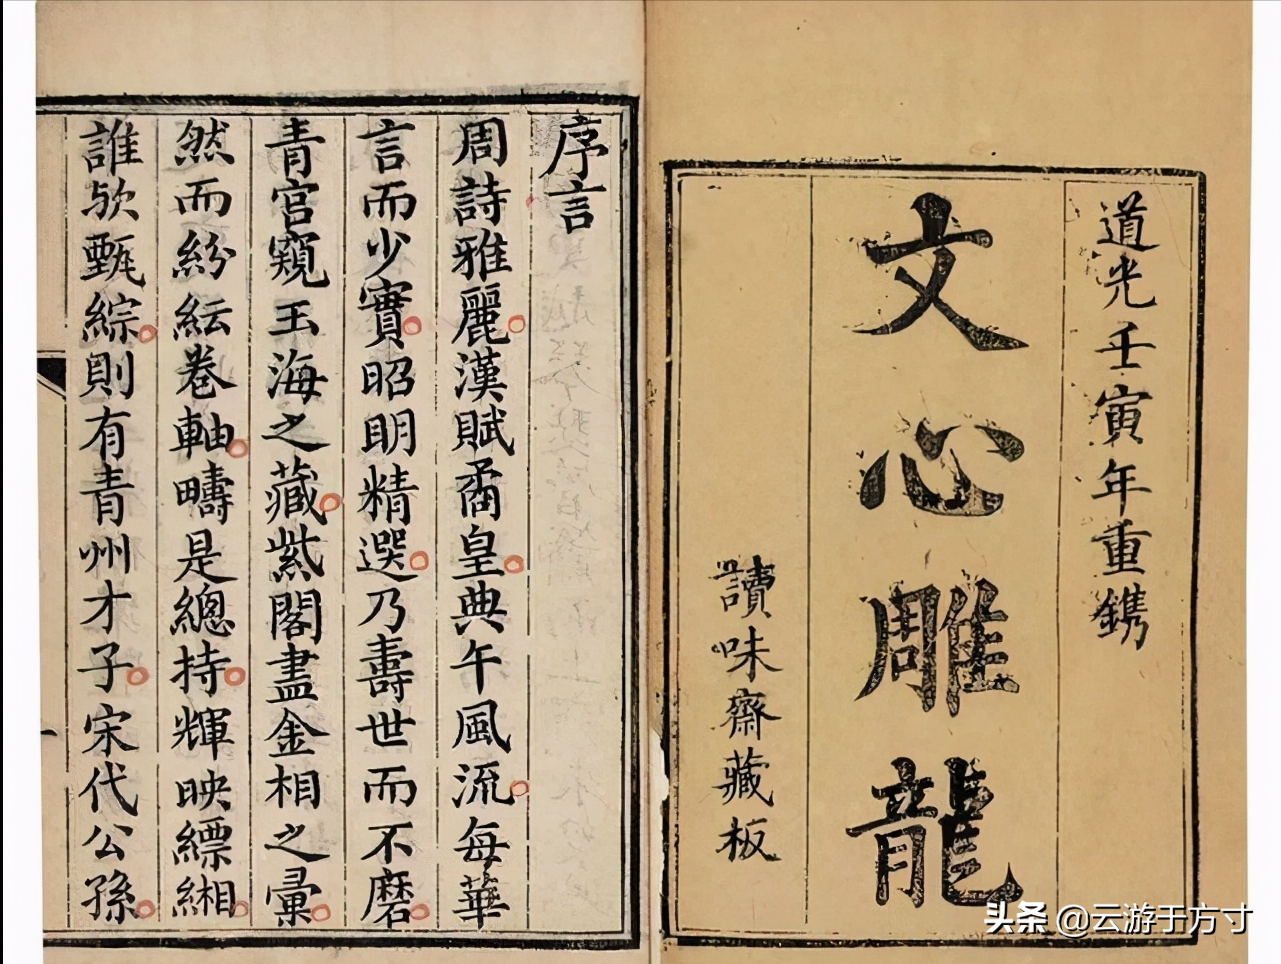 道光壬寅年重鐫
文心雕龍
讀味齋藏板
序言
周詩雅麗漢賦矞皇典午風流每華
言而少實昭明精選乃壽世而不磨
青宮窺玉海之藏紫閣盡金相之彙
然而紛紜卷軸疇是總持輝映縹緗
誰歟甄綜則有青州才子宋代公孫
头条 @云游于方寸